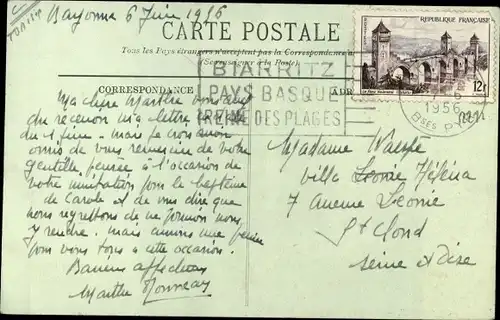 Bayonne 6 Juin 1956
CARTE POSTALE
Tous les Pays étrangers n'acceptent pas la Correspondance
(Se renseigner à la Poste)
CORRESPONDANCE
ADR
REPUBLIQUE FRANÇAISE
12f
BIARRITZ
PAYS BASQUE
REINE DES PLAGES
1956
BSES P
Ma chère Marthe
du recevoir ma lettre
du 1 juin - mais je crois avoir
omis de vous remercier de votre
gentille pensée à l'occasion de
votre invitation pour le baptême
de Carole et de vous dire que
nous regrettons de ne pouvoir nous
y rendre. mais aurons une pensée
pour vous tous à cette occasion.
Baisers affectueux
Marthe
Madame
Villa Leonie Héléna
7 avenue Leonie
St Cloud
Seine et Oise